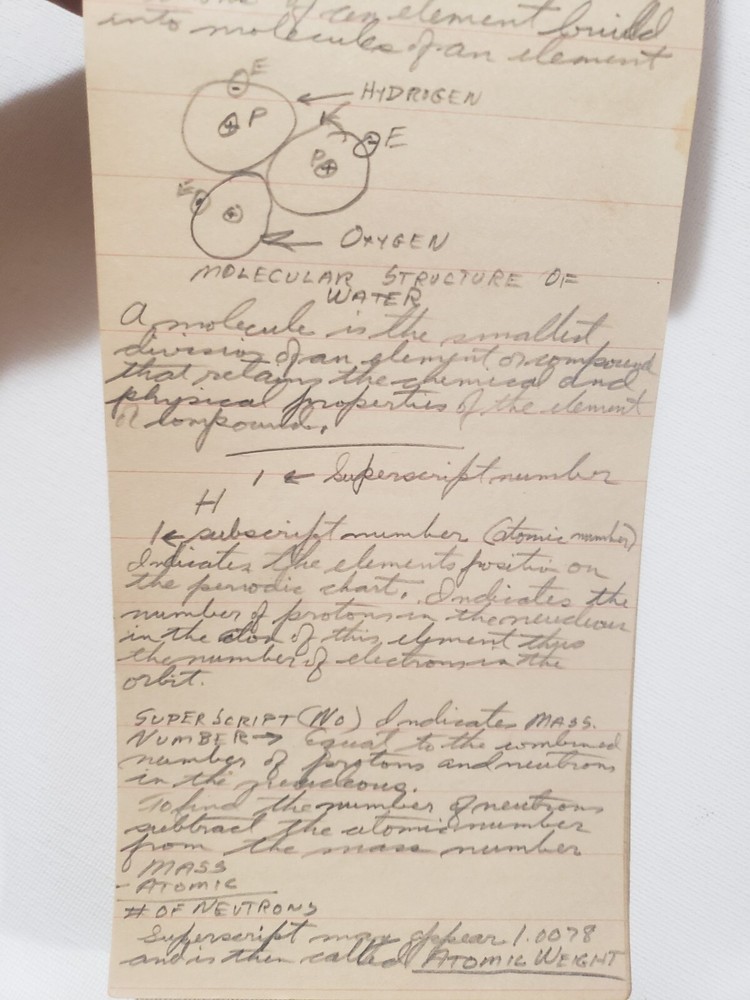 of an element build
into molecules of an element
E
HYDROGEN
- P
+
E
-
P
+
E
-
+
OXYGEN
MOLECULAR STRUCTURE OF
WATER
A molecule is the smallest
division of an element or compound
that retains the chemical and
physical properties of the element
or compound.
1 ← Superscript number
H
1 ← subscript number (atomic number)
Indicates the elements position on
the periodic chart. Indicates the
number of protons in the neucleus
in the atom of this element thus
the number of electrons in the
orbit.
SUPERSCRIPT (NO) Indicates MASS.
NUMBER → Equal to the combined
number of protons and neutrons
in the
To find the number of neutrons
subtract the atomic number
from the mass number
MASS
- ATOMIC
# OF NEUTRONS
Superscript may appear 1.0078
and is then called ATOMIC WEIGHT